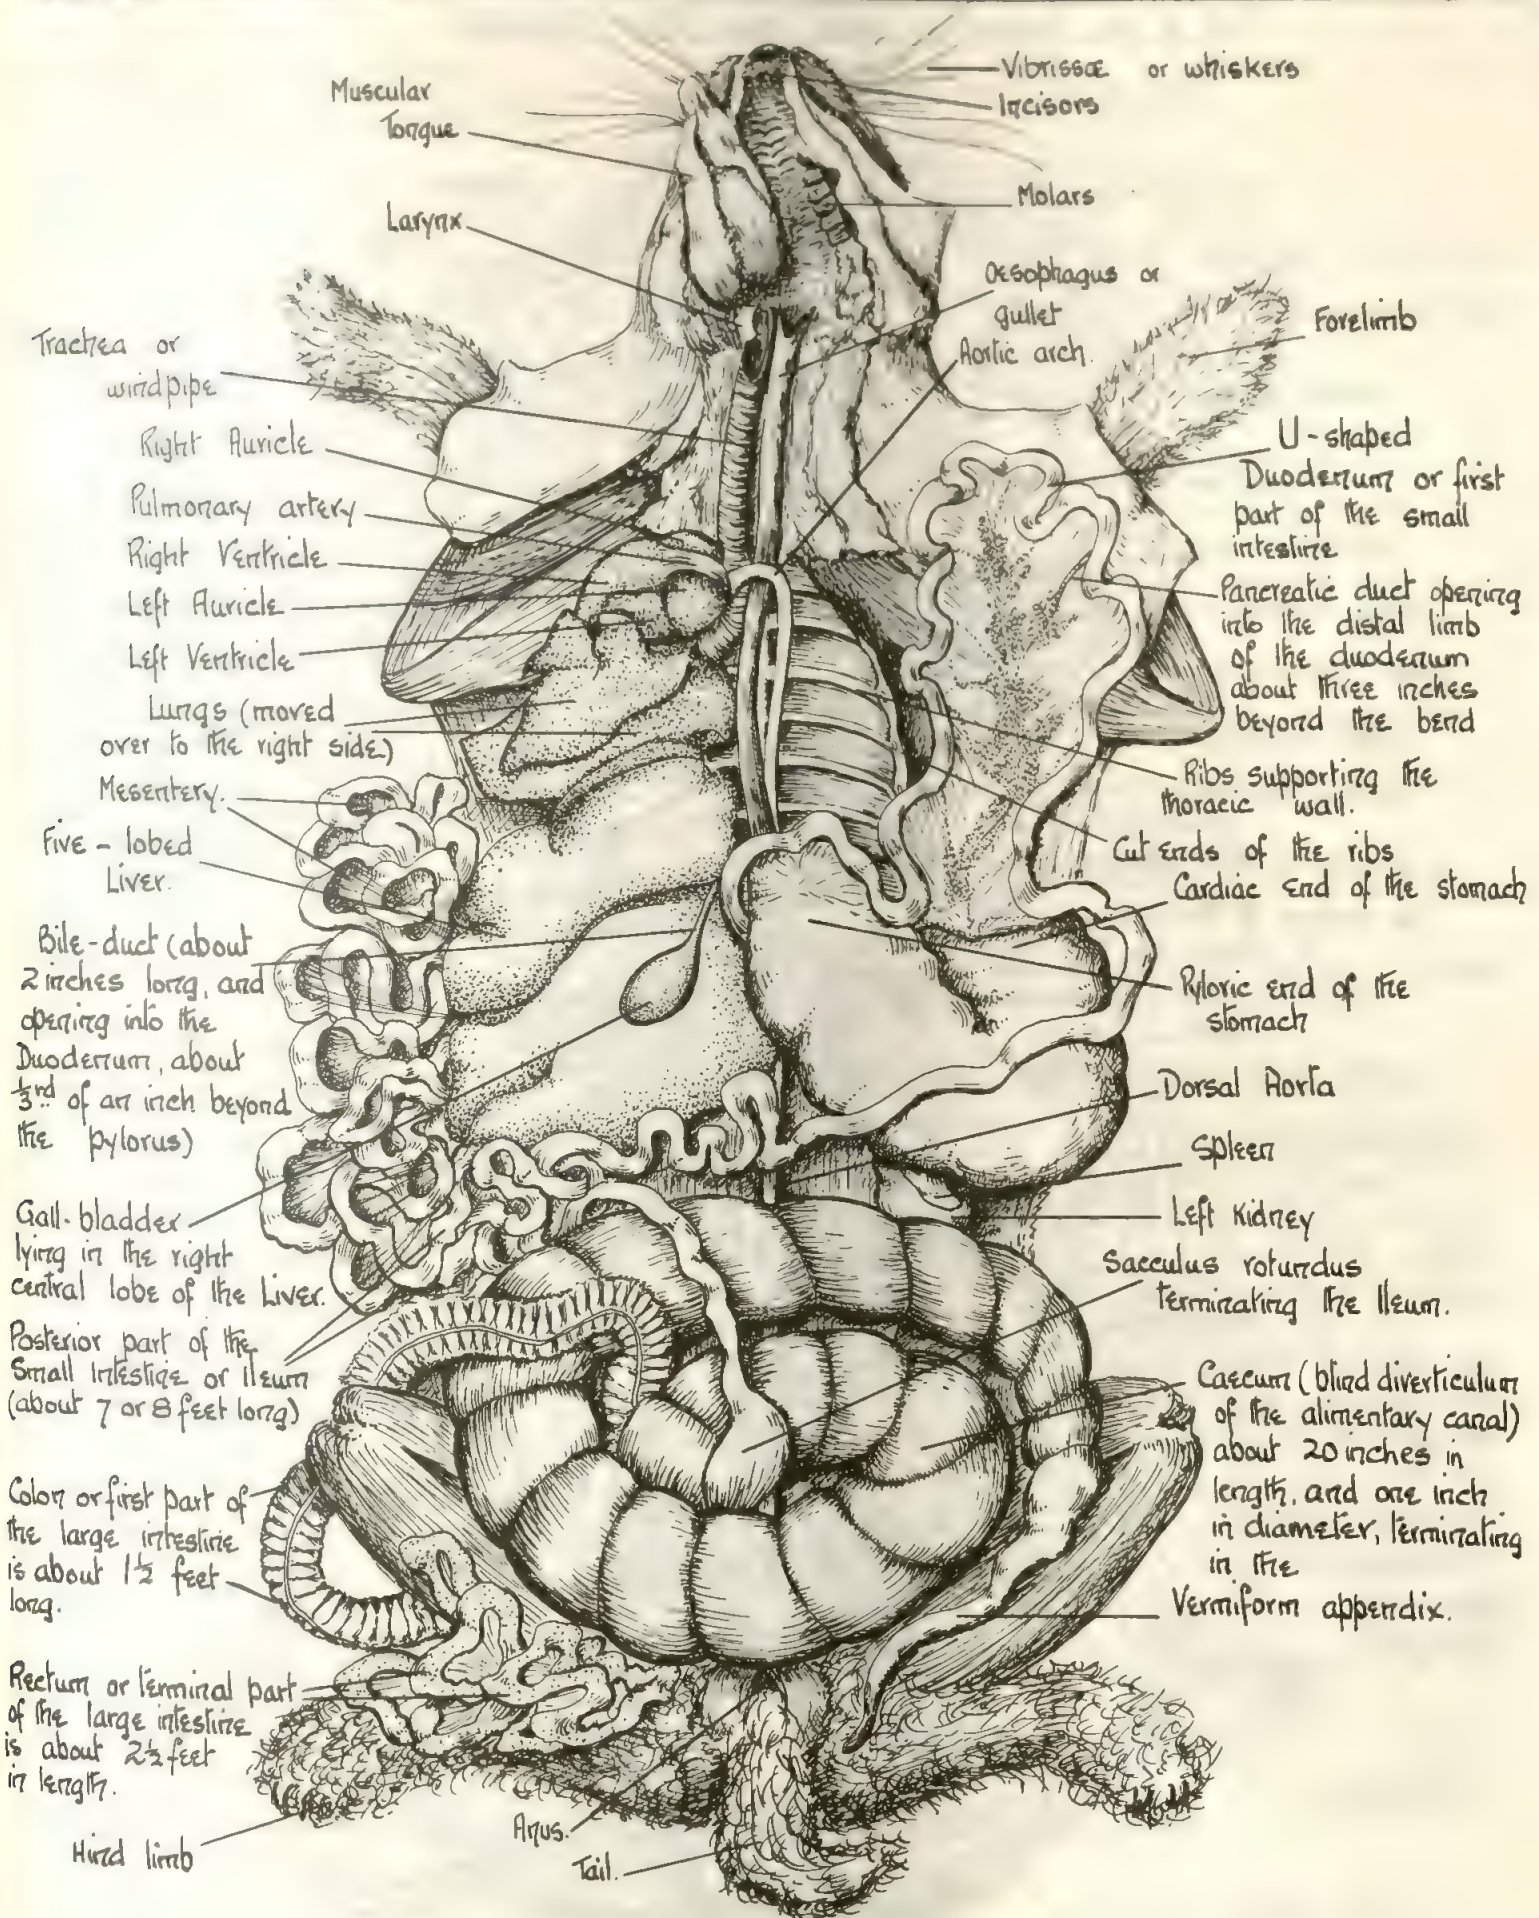 Muscular
Tongue
Larynx
Trachea or
windpipe
Right Auricle
Pulmonary artery
Right Ventricle
Left Auricle
Left Ventricle
Lungs (moved
over to the right side)
Mesentery.
Five - lobed
Liver.
Bile-duct (about
2 inches long, and
opening into the
Duodenum, about
⅓rd of an inch beyond
the pylorus)
Gall-bladder
lying in the right
central lobe of the Liver.
Posterior part of the
Small Intestine or Ileum
(about 7 or 8 feet long)
Colon or first part of
the large intestine
is about 1½ feet
long.
Rectum or terminal part
of the large intestine
is about 2½ feet
in length.
Hind limb
Anus.
Tail.
Vibrissæ or whiskers
Incisors
Molars
Oesophagus or
gullet
Aortic arch.
Forelimb
U-shaped
Duodenum or first
part of the small
intestine
Pancreatic duct opening
into the distal limb
of the duodenum
about three inches
beyond the bend
Ribs supporting the
thoracic wall.
Cut ends of the ribs
Cardiac end of the stomach
Pyloric end of the
stomach
Dorsal Aorta
Spleen
Left Kidney
Sacculus rotundus
terminating the Ileum.
Caecum (blind diverticulum
of the alimentary canal)
about 20 inches in
length, and one inch
in diameter, terminating
in the
Vermiform appendix.